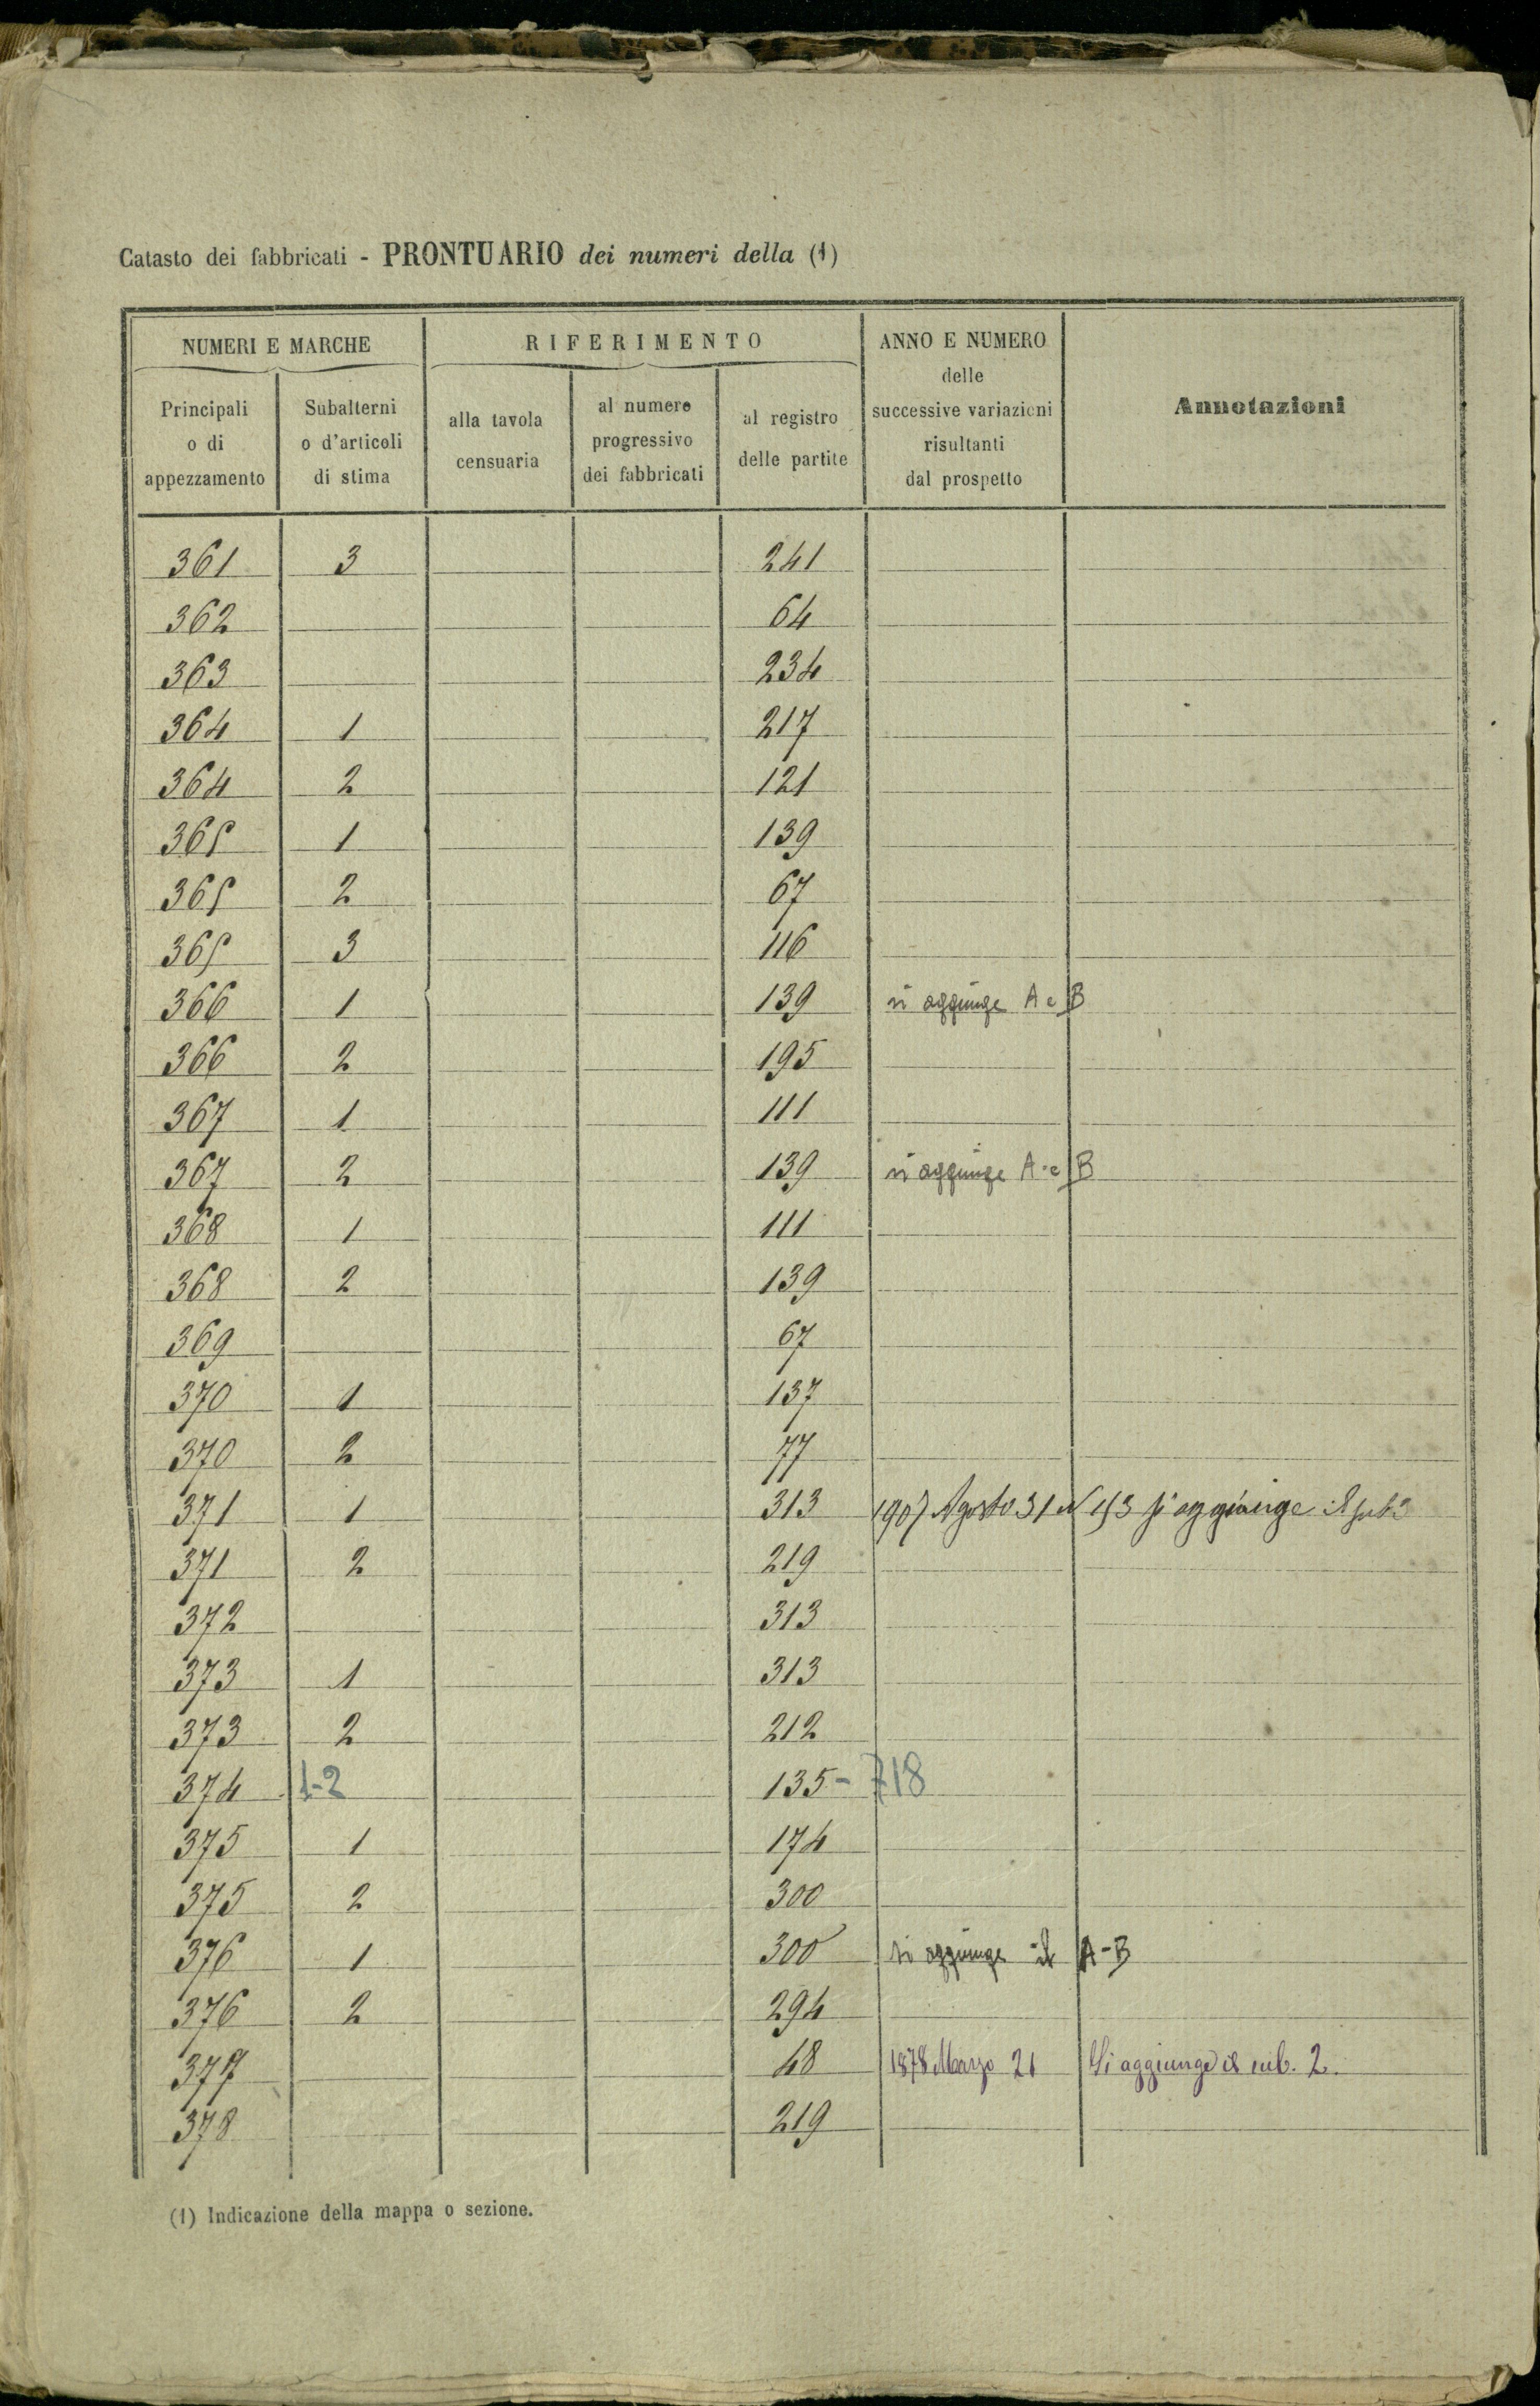 Catasto dei fabbricati - PRONTUARIO dei numeri della (1)
NUMERI E MARCHE
RIFERIMENTO
ANNO E NUMERO
delle
successive variazioni
risultanti
dal prospetto
Annotazioni
Principali
o di
appezzamento
Subalterni
o d'articoli
di stima
alla tavola
censuaria
al numero
progressivo
dei fabbricati
al registro
delle partite
361 3 241
362 64
363 234
364 1 217
364 2 121
365 1 139
365 2 67
365 3 116
366 1 139 si aggiunge A e B
366 2 195
367 1 111
367 2 139 si aggiunge A e B
368 1 111
368 2 139
369 67
370 1 137
370 2 77
371 1 313 1907 Agosto 31 N si aggiunge il sub
371 2 219
372 313
373 1 313
373 2 212
374 1-2 135 - 718
375 1 174
375 2 300
376 1 300 si aggiunge il A-B
376 2 294
377 48 1878 Marzo 21 Si aggiunge il sub. 2.
378 219
(1) Indicazione della mappa o sezione.